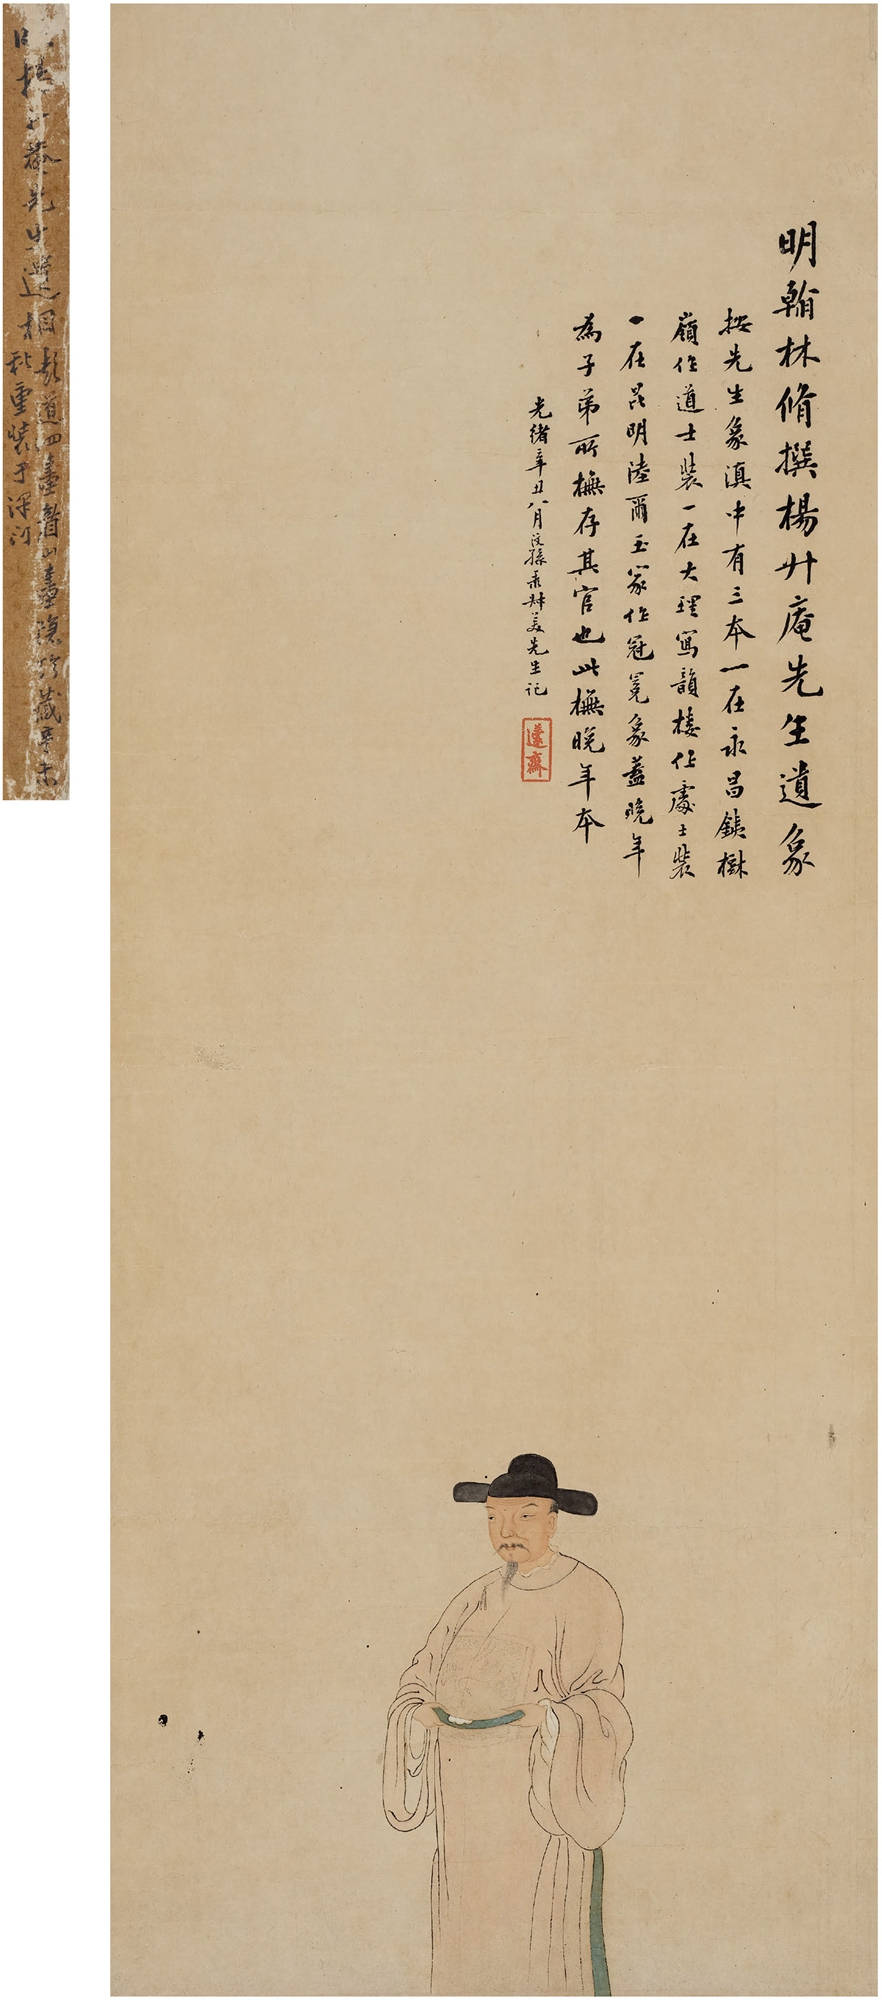 明翰林脩撰楊升庵先生遺象
按先生象滇中有三本一在永昌銕樹
嶺作道士裝一在大理寫韻樓作處士裝
一在昆明陸爾玉家作冠冕象蓋晚年
為子弟所橅存其官也此橅晚年本
光緒辛丑八月
先生記
先生遺相
珍藏辛未
秋重裝于